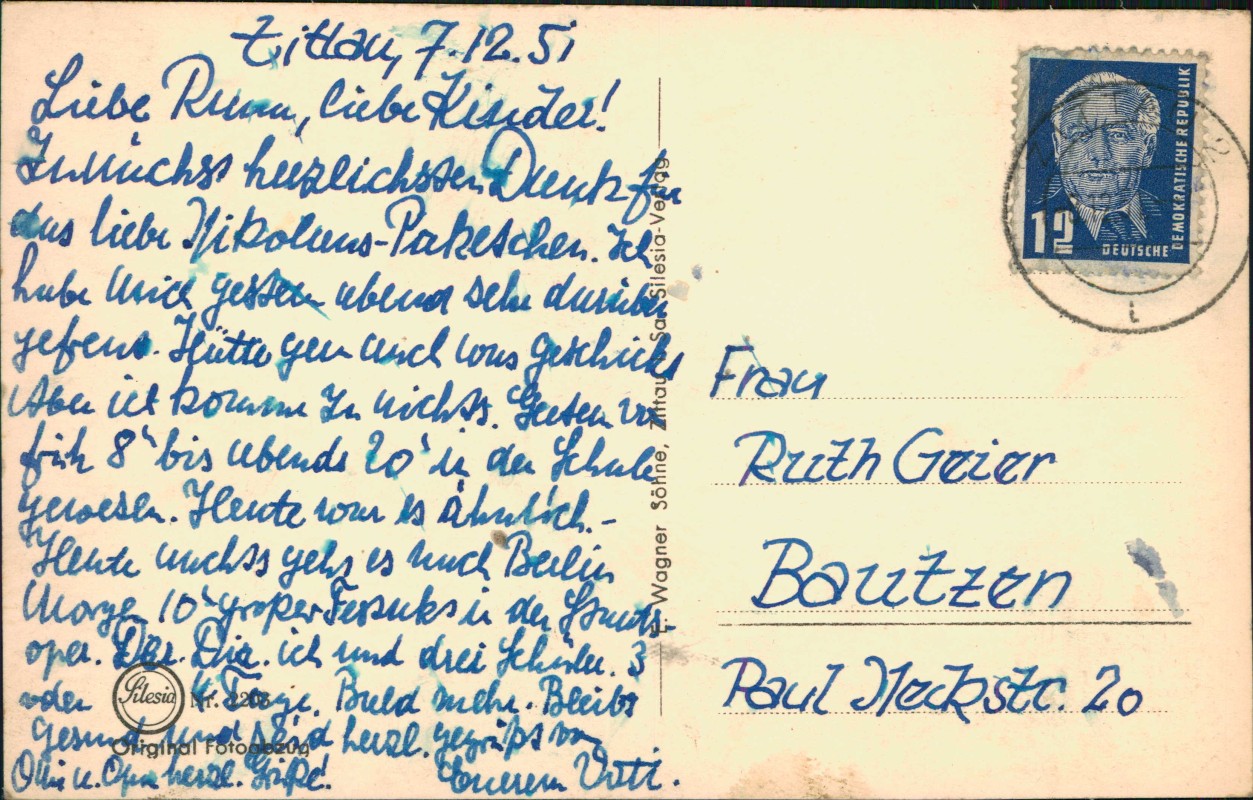 Zittau, 7.12.51
Liebe Rumm, liebe Kinder!
Zunächst herzlichsten Dank für
das liebe Nikolaus-Paketchen. Ich
habe mich gestern abend sehr darüber
gefreut. Hätte gern auch was geschickt
Aber ich komme zu nichts. Gestern von
früh 8 bis abends 20 in der Schule
gewesen. Heute war es ähnlich.-
Heute nachts gehts es nach Berlin
Morgen 10 großer Festakt in der Staats-
oper. Der Dir. ich und drei Schüler. 3
oder 4 Tage. Bald mehr. Bleibt
gesund und seid herzl. gegrüßt von
Omi u. Opa herzl. Grüße! Euerem Vati.
Silesia Nr. 220
Original Fotoabzug
E. Wagner Söhne, Zittau Sa. Silesia-Verlag
12
DEUTSCHE
DEMOKRATISCHE REPUBLIK
Frau
Ruth Geier
Bautzen
Paul Neckstr. 20